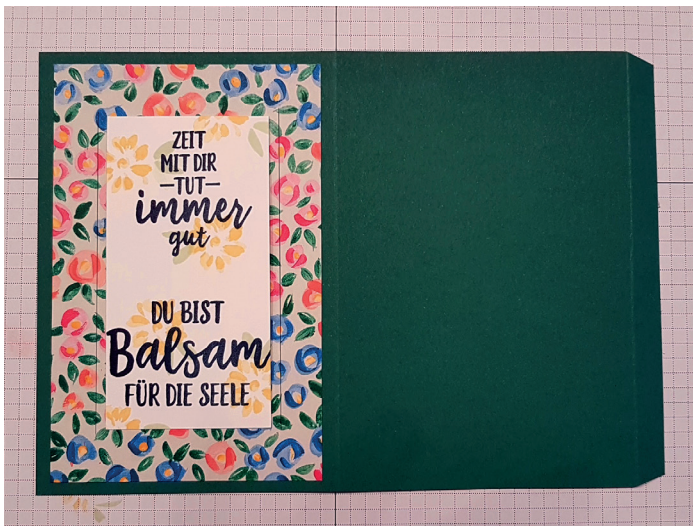 ZEIT
MIT DIR
—TUT—
immer
gut
DU BIST
Balsam
FÜR DIE SEELE